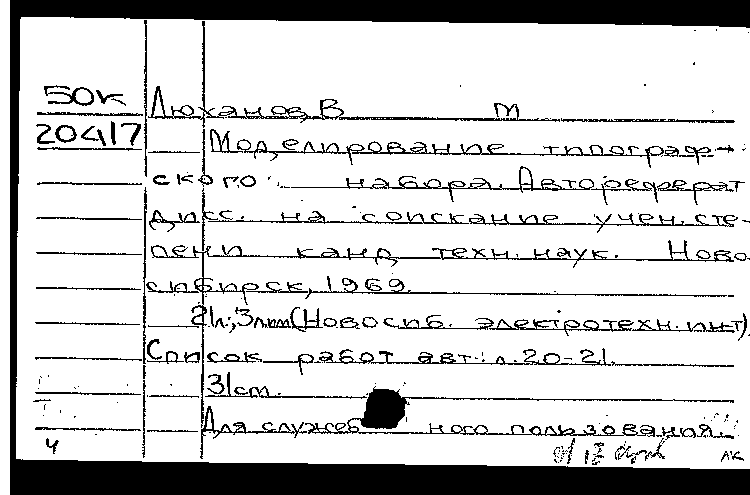 50К
Люханов, В М
20417
Моделирование типограф-
ского набора. Автореферат
дисс. на соискание учен. сте-
пени канд техн. наук. Ново
сибирск, 1969.
21л.; 3л ил (Новосиб. электротехн. ин-т).
Список работ авт: л. 20-21.
31см.
Для служеб ного пользования.
4 ЛК